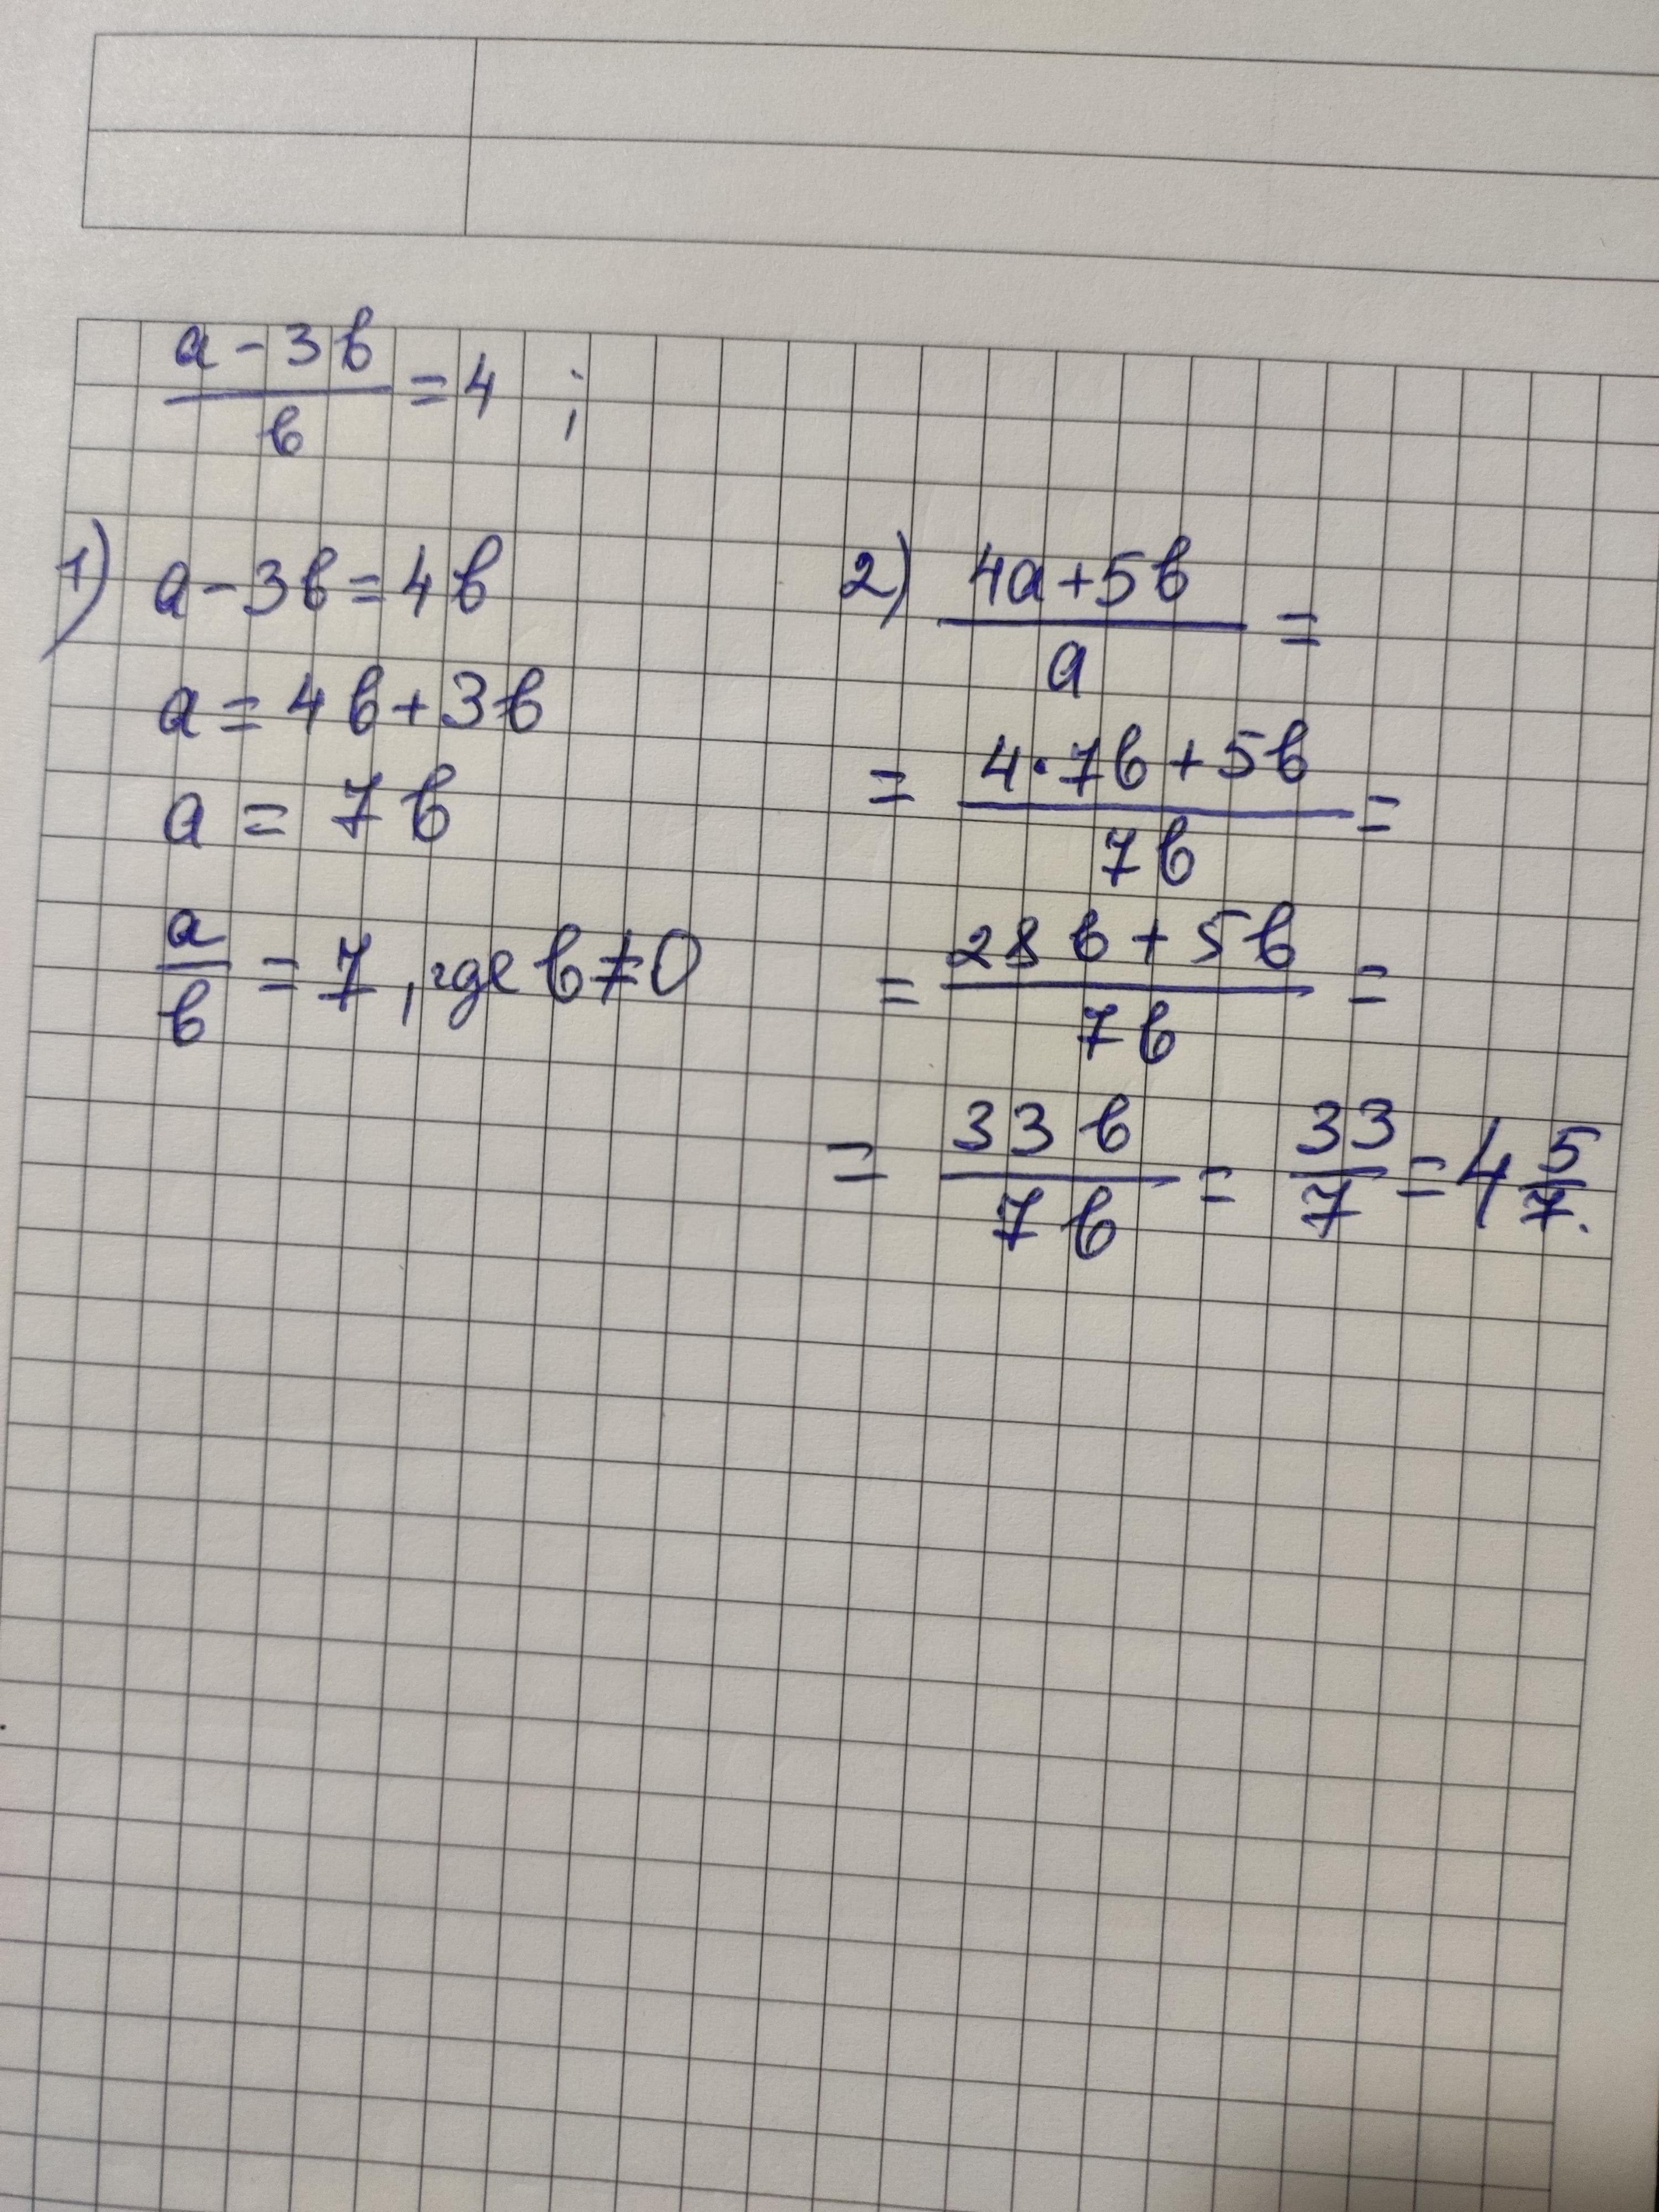 (a - 3b)/b = 4 ;
1) a - 3b = 4b
a = 4b + 3b
a = 7b
a/b = 7, где b ≠ 0
2) (4a + 5b)/a =
= (4·7b + 5b)/7b =
= (28b + 5b)/7b =
= 33b/7b = 33/7 = 4 5/7.